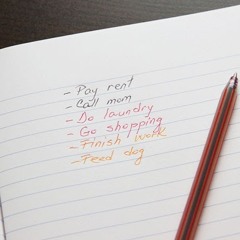 - Pay rent
- Call mom
- Do laundry
- Go shopping
- Finish work
- Feed dog